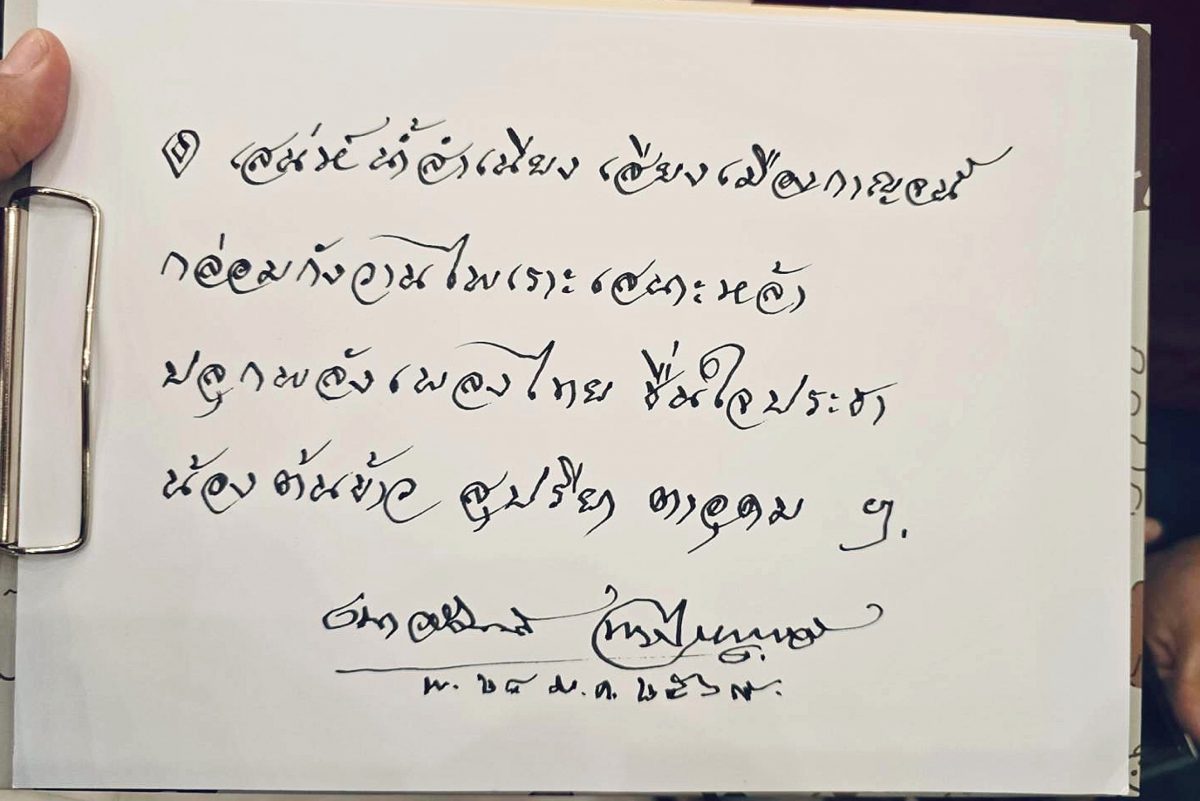 ๏ เสน่ห์น้ำสำเนียง เสียงเมืองกาญจน์
กล่อมกังวานไพเราะเสนาะหล้า
ปลุกพลังเพลงไทย ชื่นใจประชา
น้องต้นข้าว สุปรียา ตาอุดม ฯ.
เนาวรัตน์ พงษ์ไพบูลย์
พ. ๒๘ ม.ค. ๒๕๖๙.